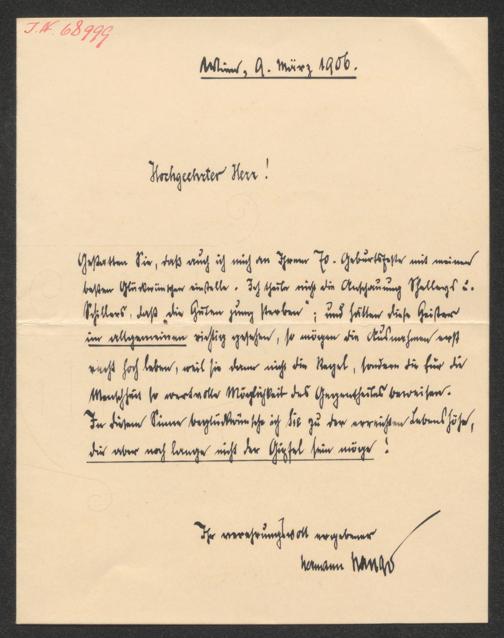 I.N. 68999
Wien, 9. März 1906.
Hochgeehrter Herr!
Gestatten Sie, daß auch ich mich an Ihrem 70. Geburtsfeste mit meinen
besten Glückwünschen einstelle. Ich theile nicht die Anschauung Shelleys u.
Schillers, daß „die Guten jung sterben"; und hätten diese Geister
im allgemeinen richtig gesehen, so mögen die Ausnahmen erst
recht hoch leben, weil sie dann nicht die Regel, sondern die für die
Menschheit so wertvolle Möglichkeit des Gegentheiles beweisen.
In diesem Sinne beglückwünsche ich Sie zu der erreichten Lebenshöhe,
die aber noch lange nicht der Gipfel sein möge!
Ihr verehrungsvoll ergebener
Hermann Hango